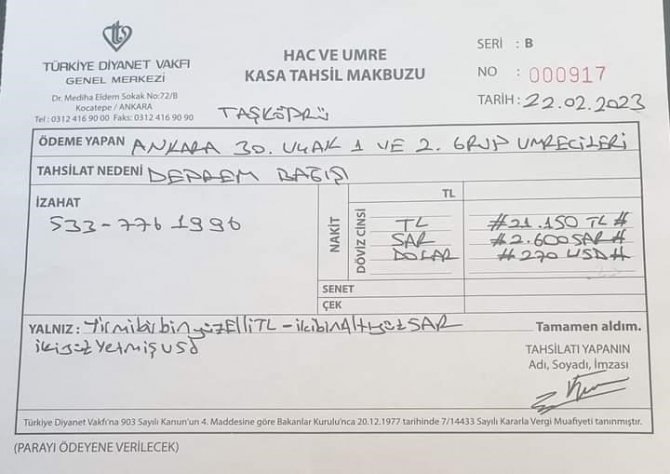 TÜRKİYE DİYANET VAKFI
GENEL MERKEZİ
Dr. Mediha Eldem Sokak No:72/B
Kocatepe / ANKARA
Tel : 0312 416 90 00 Faks: 0312 416 90 90
HAC VE UMRE
KASA TAHSİL MAKBUZU
SERİ : B
NO : 000917
TARİH : 22.02.2023
TAŞKÖPRÜ
ÖDEME YAPAN ANKARA 30. UÇAK 1 VE 2. GRUP UMRECİLERİ
TAHSİLAT NEDENİ DEPREM BAĞIŞI
İZAHAT
533-776 1996
NAKİT
DÖVİZ CİNSİ
TL
TL #21.150 TL#
SAR #2.600 SAR#
DOLAR #270 USD#
SENET
ÇEK
YALNIZ : Yirmibirbinyüzelli TL - ikibinaltıyüz SAR
ikiyüzyetmiş USD
Tamamen aldım.
TAHSİLATI YAPANIN
Adı, Soyadı, İmzası
Türkiye Diyanet Vakfı'na 903 Sayılı Kanun'un 4. Maddesine göre Bakanlar Kurulu'nca 20.12.1977 tarihinde 7/14433 Sayılı Kararla Vergi Muafiyeti tanınmıştır.
(PARAYI ÖDEYENE VERİLECEK)